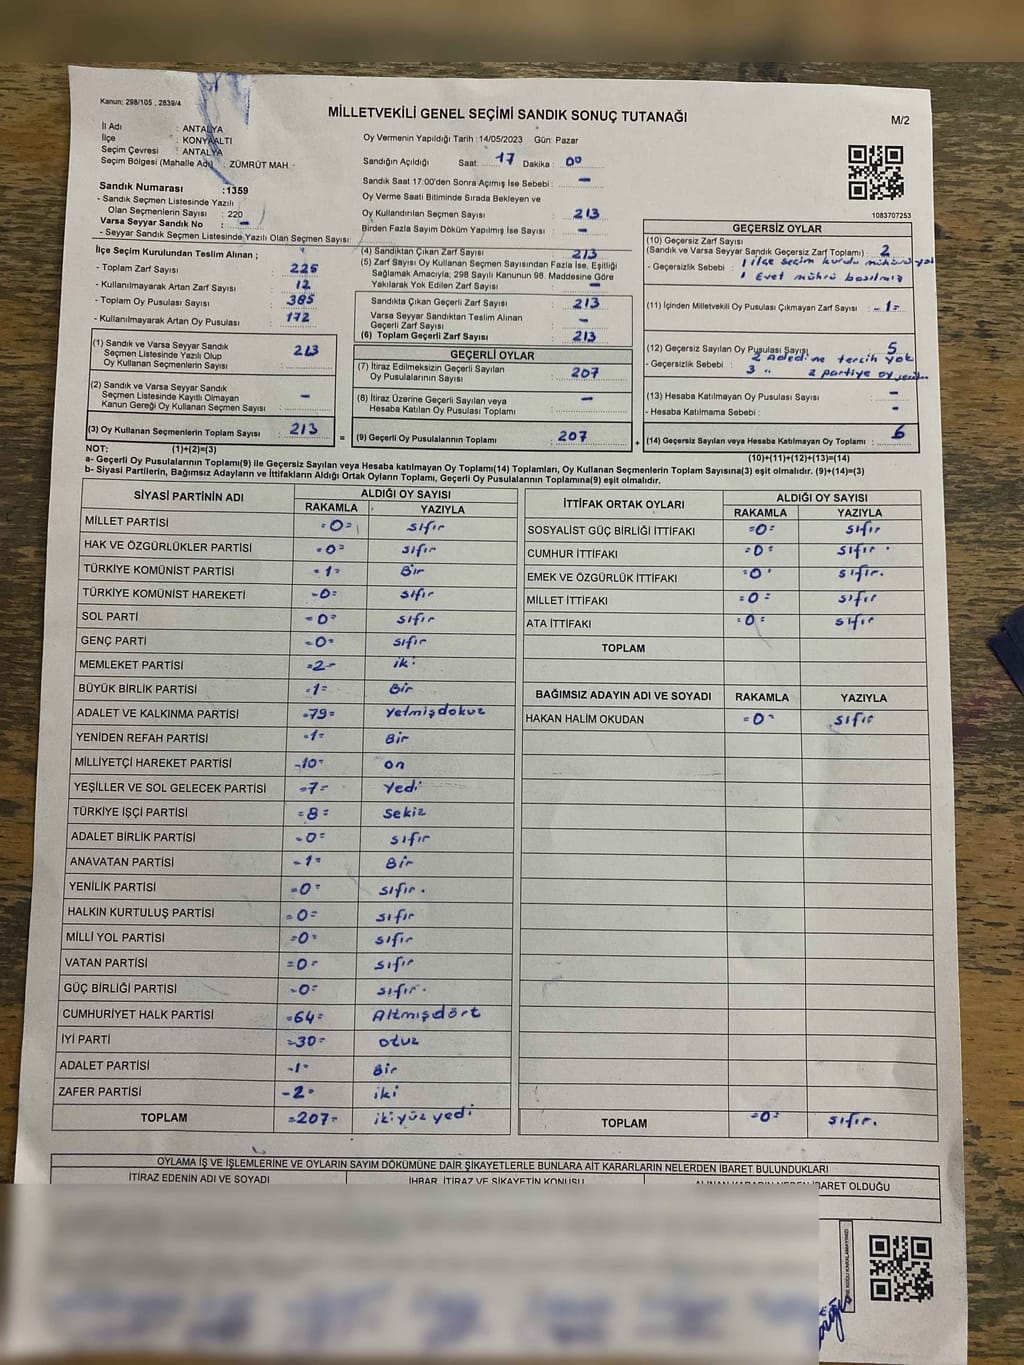 Kanun; 298/105 , 2839/4
MİLLETVEKİLİ GENEL SEÇİMİ SANDIK SONUÇ TUTANAĞI
M/2
İl Adı : ANTALYA
İlçe : KONYAALTI
Seçim Çevresi : ANTALYA
Seçim Bölgesi (Mahalle Adı) : ZÜMRÜT MAH.
Oy Vermenin Yapıldığı Tarih :14/05/2023 Gün: Pazar
Sandığın Açıldığı Saat: 17 Dakika : 00
Sandık Saat 17:00'den Sonra Açımış İse Sebebi : -
Oy Verme Saati Bitiminde Sırada Bekleyen ve
Oy Kullandırılan Seçmen Sayısı : 213
Birden Fazla Sayım Döküm Yapılmış İse Sayısı : -
1083707253
Sandık Numarası :1359
- Sandık Seçmen Listesinde Yazılı
Olan Seçmenlerin Sayısı : 220
Varsa Seyyar Sandık No : -
- Seyyar Sandık Seçmen Listesinde Yazılı Olan Seçmen Sayısı:
İlçe Seçim Kurulundan Teslim Alınan ;
- Toplam Zarf Sayısı : 225
- Kullanılmayarak Artan Zarf Sayısı : 12
- Toplam Oy Pusulası Sayısı : 385
- Kullanılmayarak Artan Oy Pusulası : 172
(1) Sandık ve Varsa Seyyar Sandık
Seçmen Listesinde Yazılı Olup
Oy Kullanan Seçmenlerin Sayısı : 213
(2) Sandık ve Varsa Seyyar Sandık
Seçmen Listesinde Kayıtlı Olmayan
Kanun Gereği Oy Kullanan Seçmen Sayısı : -
(3) Oy Kullanan Seçmenlerin Toplam Sayısı : 213
(4) Sandıktan Çıkan Zarf Sayısı : 213
(5) Zarf Sayısı Oy Kullanan Seçmen Sayısından Fazla İse, Eşitliği
Sağlamak Amacıyla; 298 Sayılı Kanunun 98. Maddesine Göre
Yakılarak Yok Edilen Zarf Sayısı : -
Sandıkta Çıkan Geçerli Zarf Sayısı : 213
Varsa Seyyar Sandıktan Teslim Alınan
Geçerli Zarf Sayısı : -
(6) Toplam Geçerli Zarf Sayısı : 213
GEÇERLİ OYLAR
(7) İtiraz Edilmeksizin Geçerli Sayılan
Oy Pusulalarının Sayısı : 207
(8) İtiraz Üzerine Geçerli Sayılan veya
Hesaba Katılan Oy Pusulası Toplamı : -
= (9) Geçerli Oy Pusulalarının Toplamı : 207 +
GEÇERSİZ OYLAR
(10) Geçersiz Zarf Sayısı
(Sandık ve Varsa Seyyar Sandık Geçersiz Zarf Toplamı) : 2
- Geçersizlik Sebebi : 1 ilçe seçim kurulu mührü yok
1 Evet mührü basılmış
(11) İçinden Milletvekili Oy Pusulası Çıkmayan Zarf Sayısı : -1=
(12) Geçersiz Sayılan Oy Pusulası Sayısı : 5
- Geçersizlik Sebebi : 2 Adedine tercih yok
3 " 2 partiye oy
(13) Hesaba Katılmayan Oy Pusulası Sayısı : -
- Hesaba Katılmama Sebebi : -
(14) Geçersiz Sayılan veya Hesaba Katılmayan Oy Toplamı : 6
NOT: (1)+(2)=(3)
(10)+(11)+(12)+(13)=(14)
a- Geçerli Oy Pusulalarının Toplamı(9) ile Geçersiz Sayılan veya Hesaba katılmayan Oy Toplamı(14) Toplamları, Oy Kullanan Seçmenlerin Toplam Sayısına(3) eşit olmalıdır. (9)+(14)=(3)
b- Siyasi Partilerin, Bağımsız Adayların ve İttifakların Aldığı Ortak Oyların Toplamı, Geçerli Oy Pusulalarının Toplamına(9) eşit olmalıdır.
SİYASİ PARTİNİN ADI ALDIĞI OY SAYISI
RAKAMLA YAZIYLA
MİLLET PARTİSİ =0= sıfır
HAK VE ÖZGÜRLÜKLER PARTİSİ =0= sıfır
TÜRKİYE KOMÜNİST PARTİSİ =1= Bir
TÜRKİYE KOMÜNİST HAREKETİ =0= sıfır
SOL PARTİ =0= sıfır
GENÇ PARTİ =0= sıfır
MEMLEKET PARTİSİ =2= iki
BÜYÜK BİRLİK PARTİSİ =1= Bir
ADALET VE KALKINMA PARTİSİ =79= Yetmişdokuz
YENİDEN REFAH PARTİSİ =1= Bir
MİLLİYETÇİ HAREKET PARTİSİ =10= on
YEŞİLLER VE SOL GELECEK PARTİSİ =7= Yedi
TÜRKİYE İŞÇİ PARTİSİ =8= Sekiz
ADALET BİRLİK PARTİSİ =0= sıfır
ANAVATAN PARTİSİ =1= Bir
YENİLİK PARTİSİ =0= sıfır.
HALKIN KURTULUŞ PARTİSİ =0= sıfır
MİLLİ YOL PARTİSİ =0= sıfır
VATAN PARTİSİ =0= sıfır
GÜÇ BİRLİĞİ PARTİSİ =0= sıfır.
CUMHURİYET HALK PARTİSİ =64= Altmışdört
İYİ PARTİ =30= otuz
ADALET PARTİSİ =1= Bir
ZAFER PARTİSİ =2= iki
TOPLAM =207= iki yüz yedi
İTTİFAK ORTAK OYLARI ALDIĞI OY SAYISI
RAKAMLA YAZIYLA
SOSYALİST GÜÇ BİRLİĞİ İTTİFAKI =0= sıfır
CUMHUR İTTİFAKI =0= sıfır.
EMEK VE ÖZGÜRLÜK İTTİFAKI =0= sıfır.
MİLLET İTTİFAKI =0= sıfır
ATA İTTİFAKI =0= sıfır
TOPLAM
BAĞIMSIZ ADAYIN ADI VE SOYADI RAKAMLA YAZIYLA
HAKAN HALİM OKUDAN =0= sıfır
TOPLAM =0= sıfır.
OYLAMA İŞ VE İŞLEMLERİNE VE OYLARIN SAYIM DÖKÜMÜNE DAİR ŞİKAYETLERLE BUNLARA AİT KARARLARIN NELERDEN İBARET BULUNDUKLARI
İTİRAZ EDENİN ADI VE SOYADI İHBAR, İTİRAZ VE ŞİKAYETİN KONUSU ALINAN KARARIN NEDEN İBARET OLDUĞU